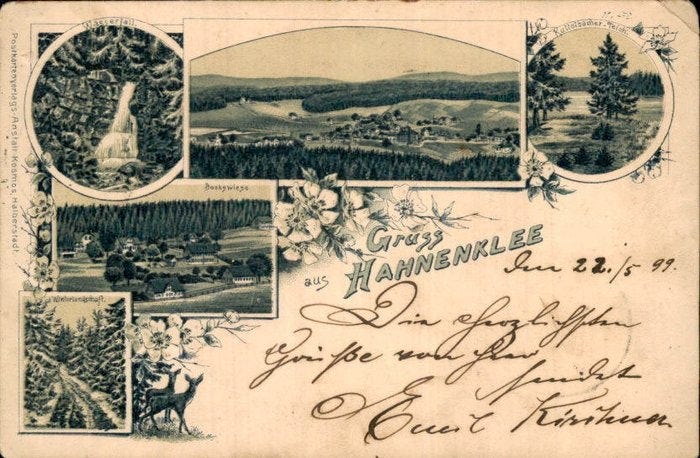 Wasserfall.
Kuttelbacher-Teich.
Postkartenverlags-Anstalt Kosmos, Halberstadt
Bockswiese
Winterlandschaft.
Gruss
aus HAHNENKLEE
Den 22./5 99.
Die herzlichsten
Grüße von hier
sendet
Emil Kirchner